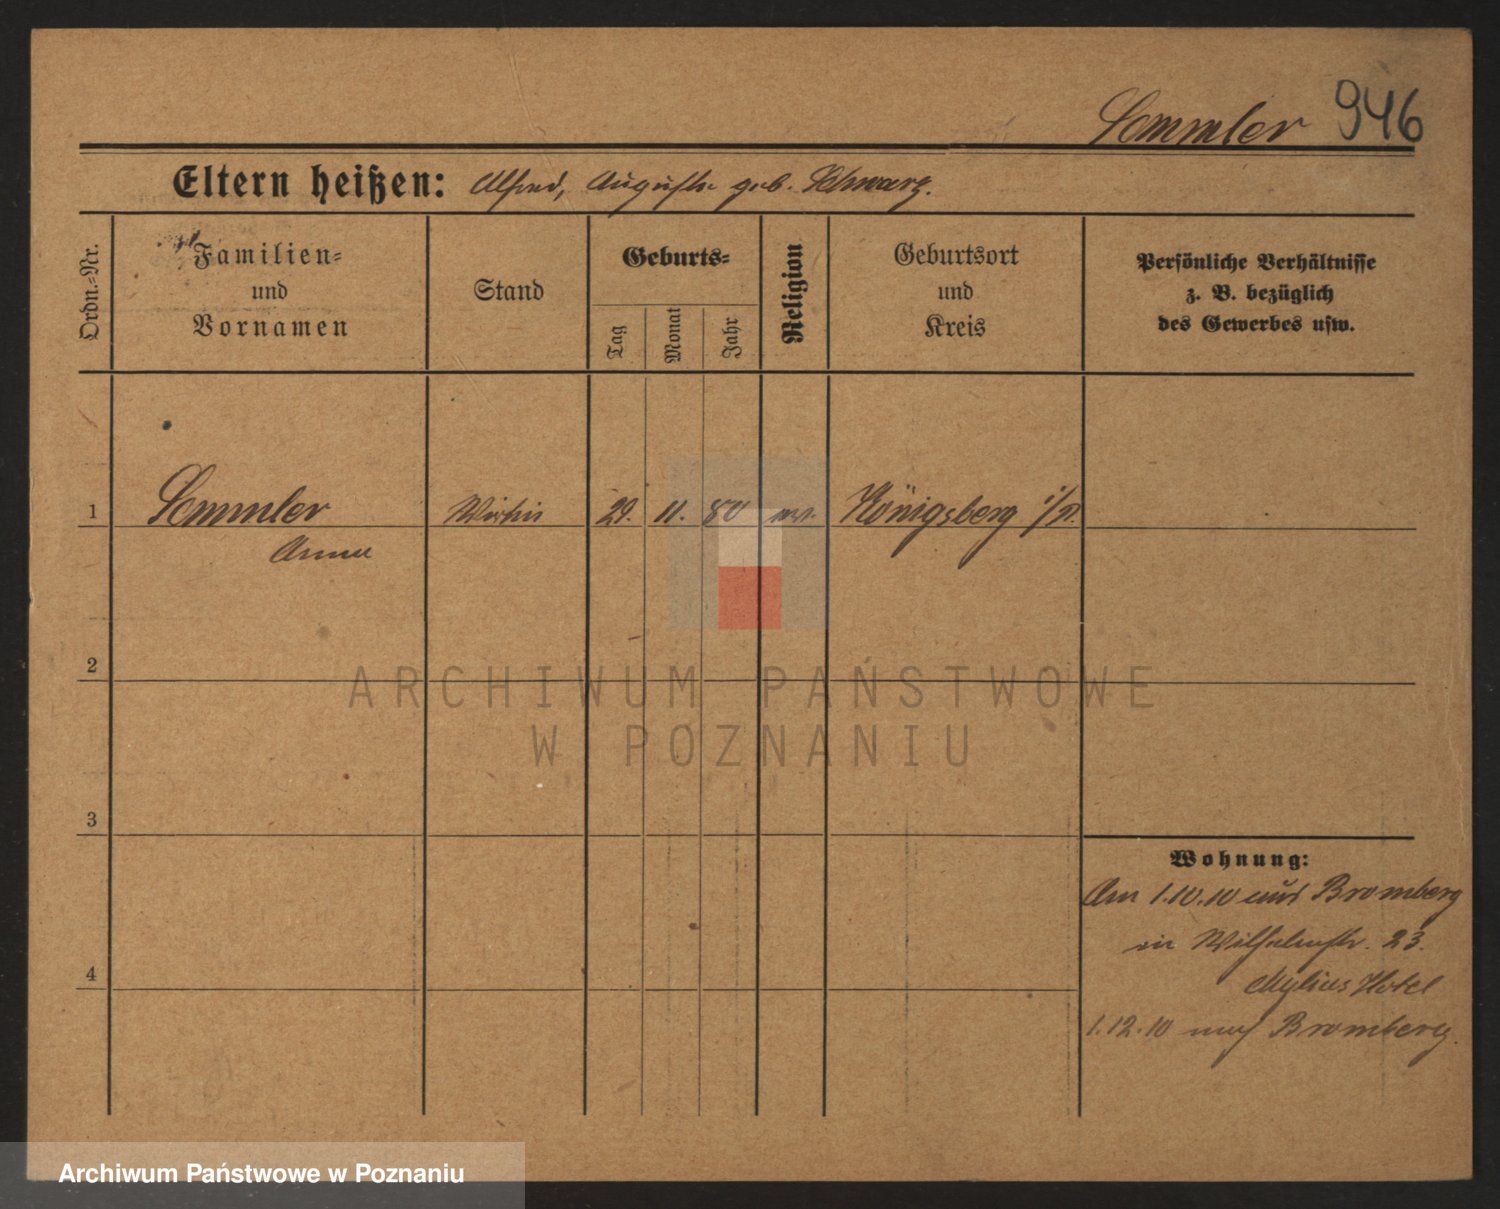 Semmler 946
Eltern heißen: Alfred, Auguste geb. Schwarz.
Ordn.-Nr.
Familien-
und
Vornamen
Stand
Geburts-
Tag
Monat
Jahr
Religion
Geburtsort
und
Kreis
Persönliche Verhältnisse
z. B. bezüglich
des Gewerbes usw.
1 Semmler Wirtin 29. 11. 80 Königsberg i/P.
Anna
2
3
4
Wohnung:
Am 1.10.10 aus Bromberg
in Wilhelmstr. 23.
Mylius Hotel
1.12.10 nach Bromberg.
ARCHIWUM PAŃSTWOWE
W POZNANIU
Archiwum Państwowe w Poznaniu